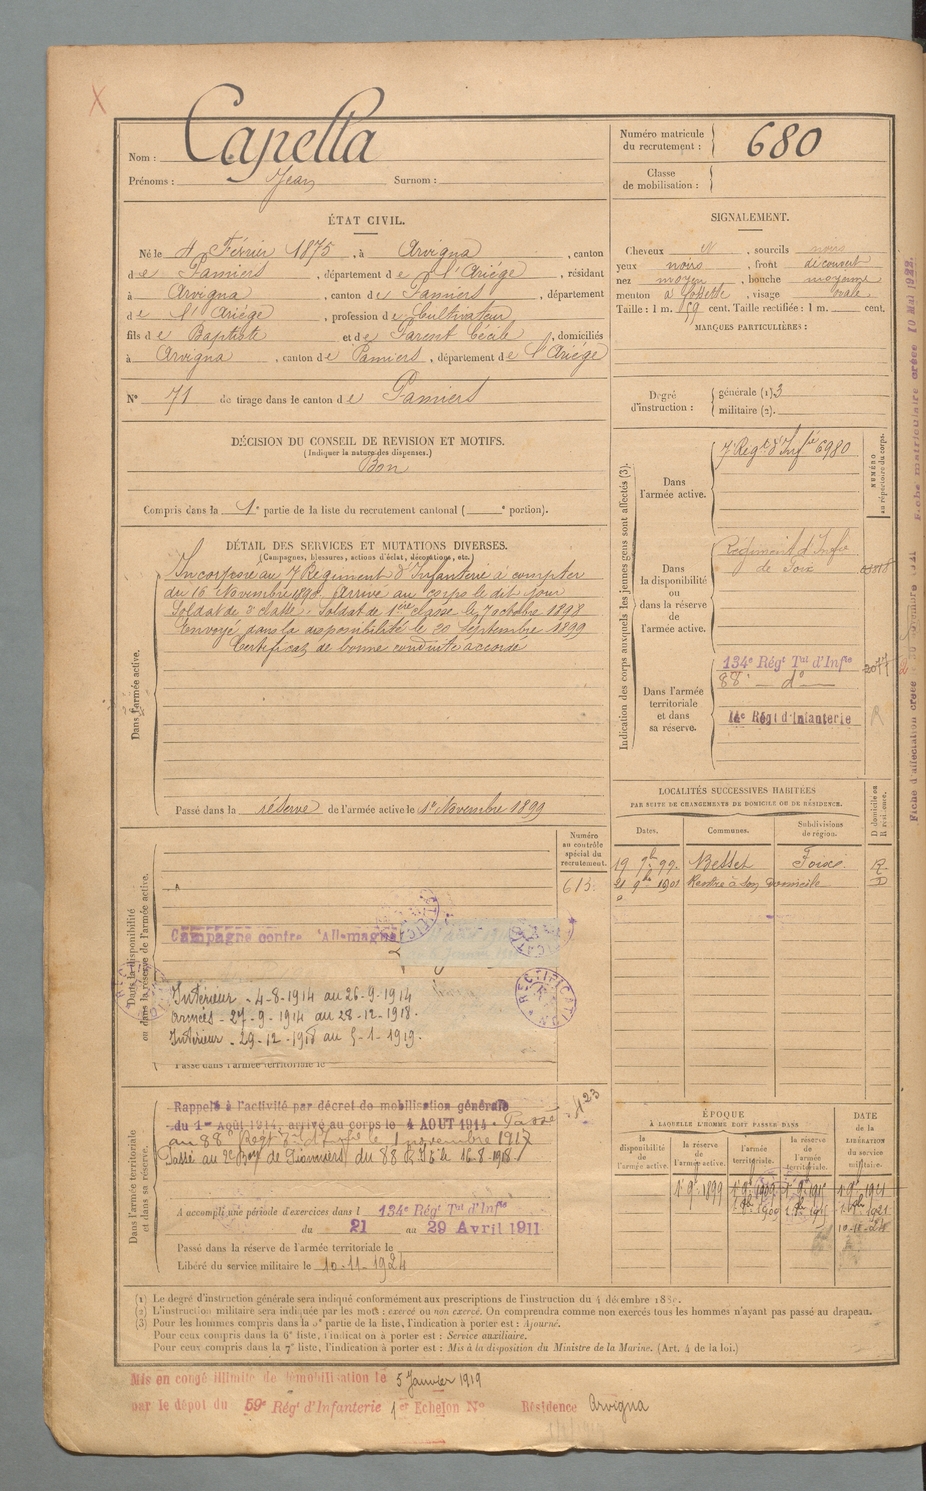 X
Nom : Capella
Prénoms : Jean Surnom :
Numéro matricule du recrutement : 680
Classe de mobilisation :
ÉTAT CIVIL.
Né le 4 Février 1875, à Arvigna, canton
de Pamiers, département de l'Ariége, résidant
à Arvigna, canton de Pamiers, département
de l'Ariége, profession de Cultivateur
fils de Baptiste et de Parent Cécile, domiciliés
à Arvigna, canton de Pamiers, département de l'Ariége
N° 71 de tirage dans le canton de Pamiers
SIGNALEMENT.
Cheveux N, sourcils noirs
yeux noirs, front découvert
nez moyen, bouche moyenne
menton à fossette, visage ovale.
Taille : 1 m. 659 cent. Taille rectifiée : 1 m. cent.
MARQUES PARTICULIÈRES :
Degré d'instruction : générale (1) 3
militaire (2).
DÉCISION DU CONSEIL DE REVISION ET MOTIFS.
(Indiquer la nature des dispenses.)
Bon
Compris dans la 1e partie de la liste du recrutement cantonal ( e portion).
DÉTAIL DES SERVICES ET MUTATIONS DIVERSES.
(Campagnes, blessures, actions d'éclat, décorations, etc.)
Dans l'armée active.
Incorporé au 7 Régiment d'Infanterie à compter
du 16 Novembre Arrivé au corps le dit jour
Soldat de 2e classe. Soldat de 1ere classe le 7 octobre 1898
Envoyé dans la disponibilité le 20 Septembre 1899
Certificat de bonne conduite accordé
Passé dans la réserve de l'armée active le 1er Novembre 1899
Indication des corps auxquels les jeunes gens sont affectés (3).
NUMÉRO au répertoire du corps.
Dans l'armée active.
7 Régt d'Infie 6980
Dans la disponibilité ou dans la réserve de l'armée active.
Régiment d'Infie
de Foix
Dans l'armée territoriale et dans sa réserve.
134e Régt Tal d'Infie 2077
88e d°
14e Régt d'Infanterie R
LOCALITÉS SUCCESSIVES HABITÉES
PAR SUITE DE CHANGEMENTS DE DOMICILE OU DE RÉSIDENCE.
Dates. Communes. Subdivisions de région. D domicile ou R résidence.
19 7bre 99. Besset Foix. R
21 9bre 1901 Rentre à son domicile D
Dans la disponibilité ou dans la réserve de l'armée active.
Numéro au contrôle spécial du recrutement.
613.
Campagne contre l'Allemagne
RECTIFICATION
Intérieur - 4-8-1914 au 26-9-1914
armées - 27-9-1914 au 28-12-1918.
Intérieur - 29-12-1918 au 5-1-1919.
Passé dans l'armée territoriale le
Dans l'armée territoriale et dans sa réserve.
Rappelé à l'activité par décret de mobilisation générale
du 1er Août 1914, arrivé au corps le 4 AOUT 1914. Passé
au 88e Régt d'Infie le 1 novembre 1917
Passé au 2e Bon de Pionniers du 88 R.I.T. le 16.8.1918
A accompli une période d'exercices dans l 134e Régt Tal d'Infie
du 21 au 29 Avril 1911
Passé dans la réserve de l'armée territoriale le
Libéré du service militaire le 10-11-1924
ÉPOQUE
À LAQUELLE L'HOMME DOIT PASSER DANS
DATE DE LA LIBÉRATION du service militaire.
la disponibilité de l'armée active. la réserve de l'armée active. l'armée territoriale. la réserve de l'armée territoriale.
1er 9bre 1899
10-11-24
(1) Le degré d'instruction générale sera indiqué conformément aux prescriptions de l'instruction du 4 décembre
(2) L'instruction militaire sera indiquée par les mots : exercé ou non exercé. On comprendra comme non exercés tous les hommes n'ayant pas passé au drapeau.
(3) Pour les hommes compris dans la 5e partie de la liste, l'indication à porter est : Ajourné.
Pour ceux compris dans la 6e liste, l'indication à porter est : Service auxiliaire.
Pour ceux compris dans la 7e liste, l'indication à porter est : Mis à la disposition du Ministre de la Marine. (Art. 4 de la loi.)
Mis en congé illimité de démobilisation le 5 Janvier 1919
par le dépôt du 59e Régt d'Infanterie 1er Echelon N° Résidence Arvigna